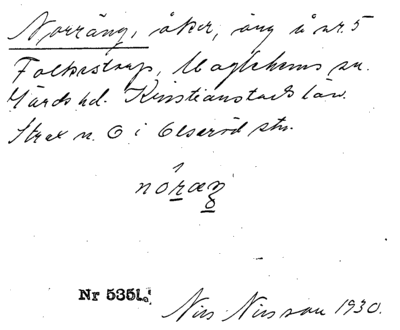 Norräng, åker, äng å nr. 5
Folkestorp, Maglehems sn.
Gärds hd. Kristianstads län.
Strax n. O i Olseröd stn.
Nr 5351
Nils Nilsson 1930.